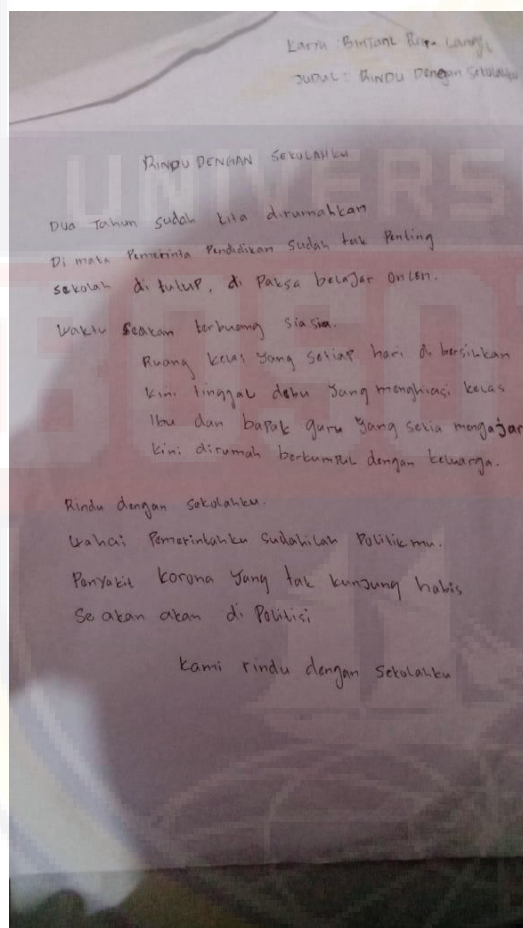 Karya : BINTANG
JUDUL : RINDU Dengan Sekolahku
RINDU DENGAN SEKOLAHKU
Dua Tahun sudah kita dirumahkan
Di mata Pemerinta Pendidikan sudah tak Penting
sekolah di tutup, di Paksa belajar onlen.
waktu seakan terbuang sia sia.
Ruang kelas yang setiap hari di bersihkan
kini tinggal debu yang menghiasi kelas
Ibu dan bapak guru yang setia mengajar
kini dirumah berkumpul dengan keluarga.
Rindu dengan sekolahku.
wahai Pemerintahku sudahilah Politikmu.
Penyakit korona yang tak kunjung habis
Se akan akan di Politisi
kami rindu dengan sekolahku
UNIVERS
BOSO